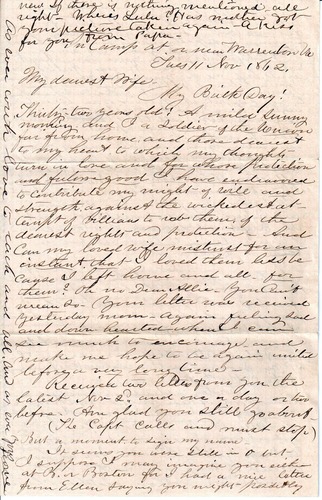 news if there is nothing mentioned all
right - Where's Lula? Has mother got
her picture taken again - A Kiss
for you from Papa -
In Camp at or near Warrenton Va
Tues 11 Nov 1862.
My dearest Wife.
My Birth Day!
Thirty-two years old! A mild sunny
morning and I a Soldier of the Union
far from home, and those dearest
to my heart to which my thoughts
turn in love and for whose protection
and future good I have endeavored
to contribute my might of will and
strength against the wickedest at-
tempt of villians to rob them, of the
dearest rights and protection - And
Can my loved wife mistrust for an
instant that I loved them less be
cause I left home and all for
them? Oh no Dear Allie - You Can't
mean so - Your letter was received
yesterday morn - again feeling sad
and down hearted when I can
see much to encourage and
make me hope to be again united
before a very long time -
Received two letters from you the
latest Nov 2d and one a day or two
before. Am glad you still go about
(The Capt Calls and must stop)
But a moment to sign my name.
It seems you were still in O but
I suppose I may imagine you
at Boston for I had a nice letter
from Ellen saying you might
as ever with love to each and all and as ever yours